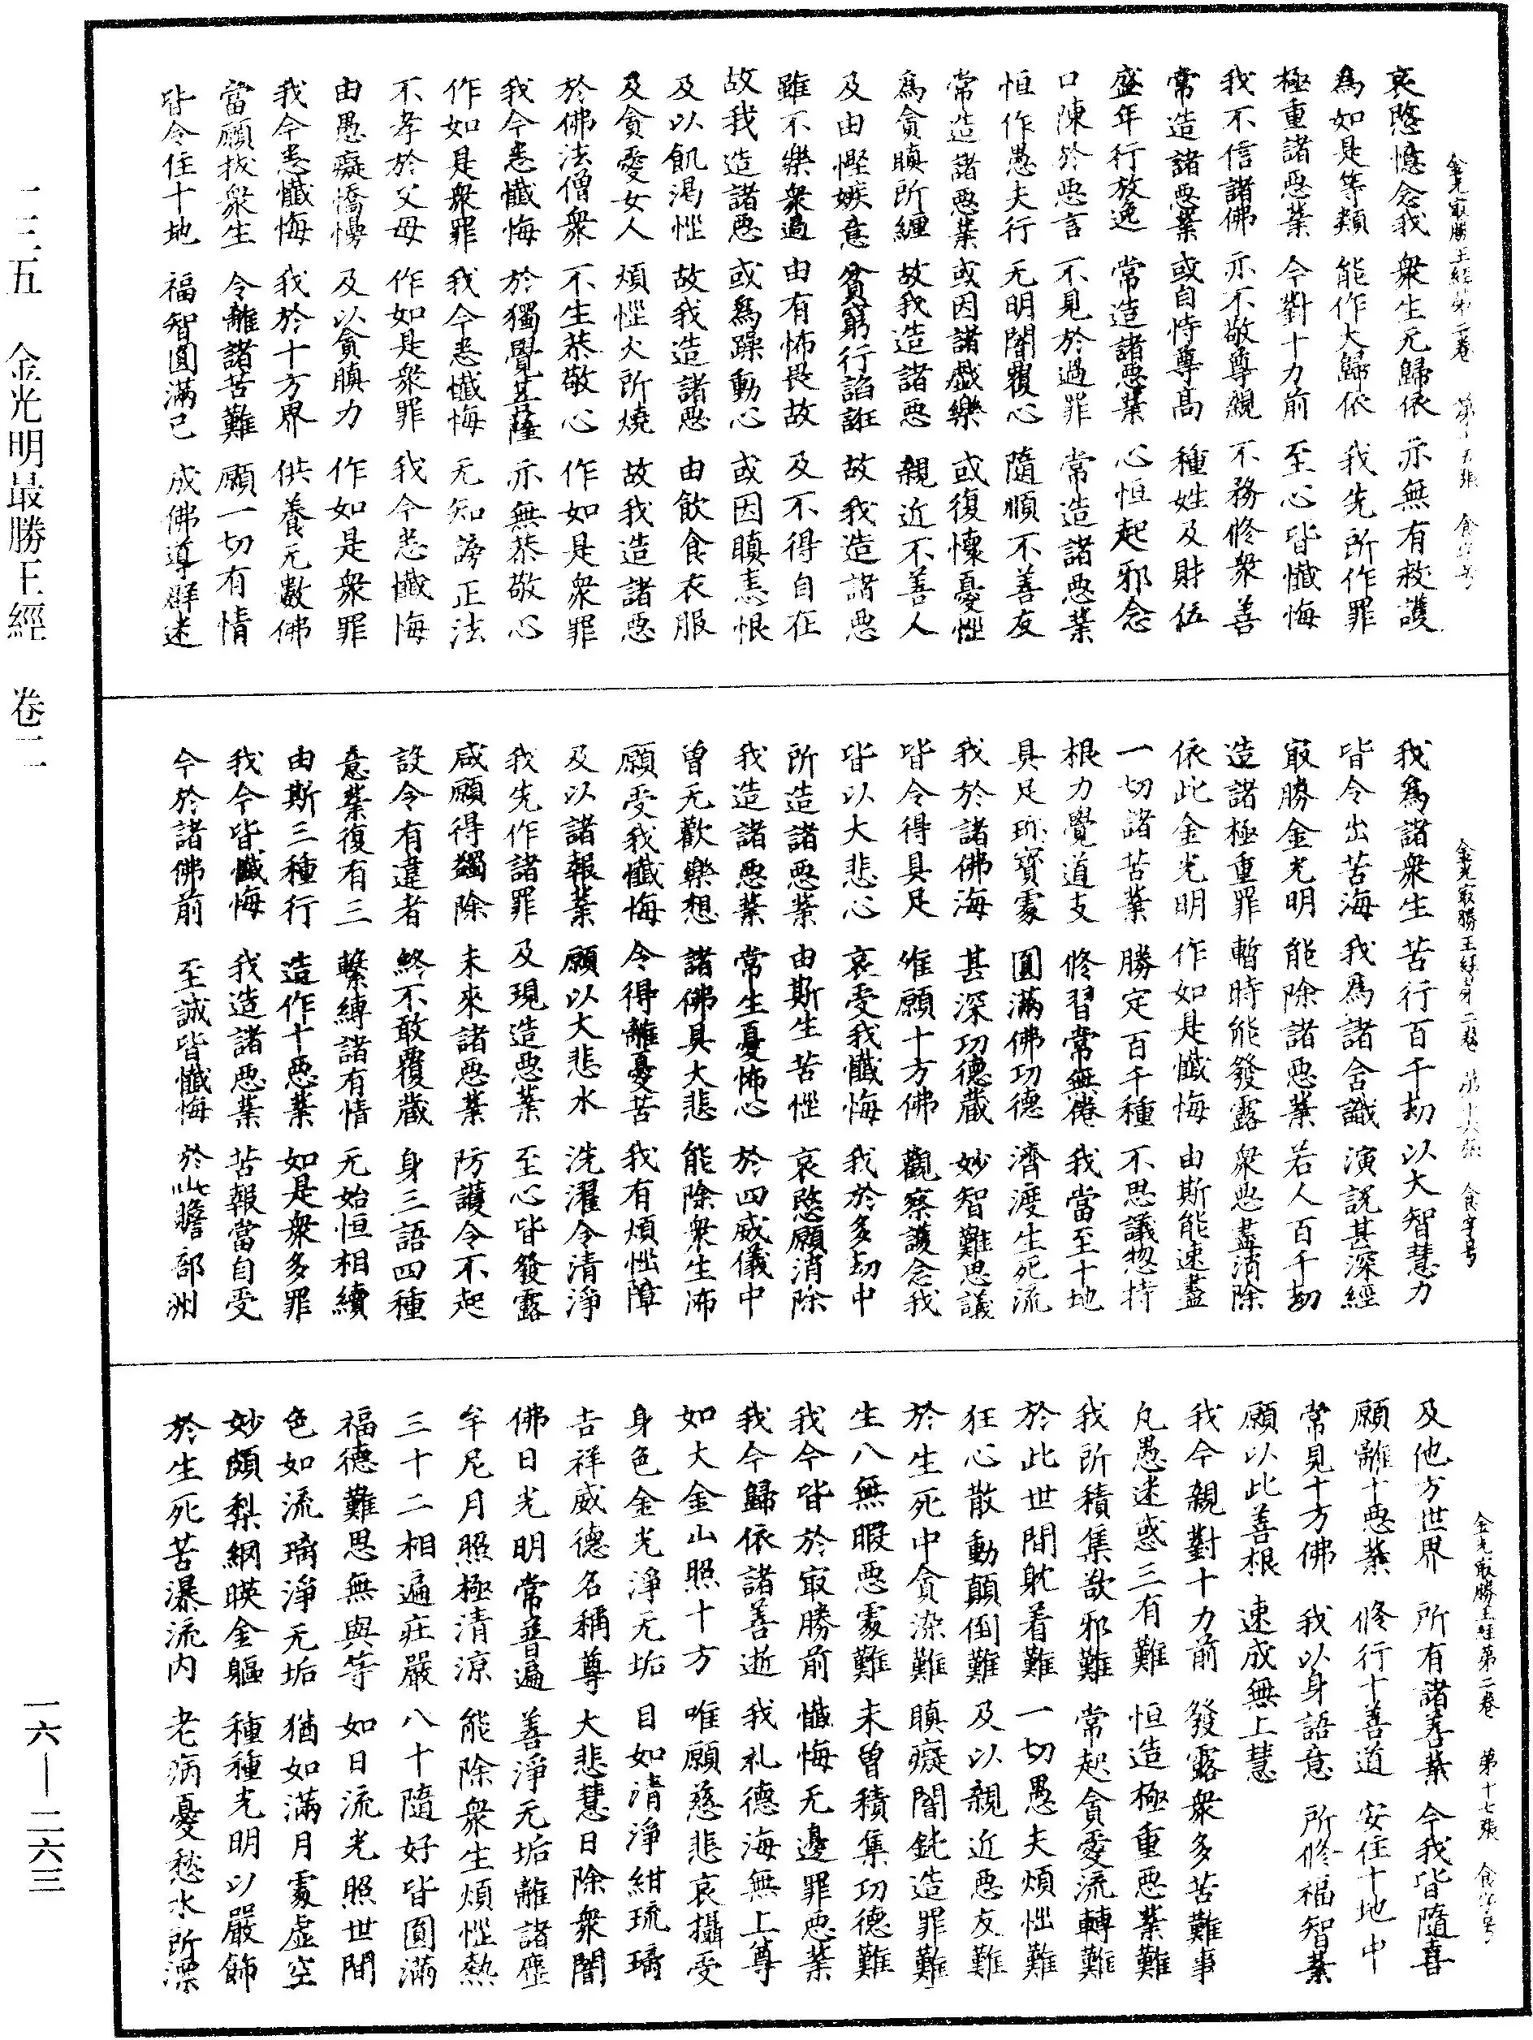 金光最勝王經第二卷　第十五張　食字号
哀愍憶念我　衆生无歸依　亦無有救護
為如是等類　能作大歸依　我先所作罪
極重諸惡業　今對十力前　至心皆懺悔
我不信諸佛　亦不敬尊親　不務修衆善
常造諸惡業　或自恃尊高　種姓及財伍
盛年行放逸　常造諸惡業　心恒起邪念
口陳於惡言　不見於過罪　常造諸惡業
恒作愚夫行　无明闇覆心　隨順不善友
常造諸惡業　或因諸戲樂　或復懷憂恼
為貪瞋所纏　故我造諸惡　親近不善人
及由慳嫉意　貧窮行諂誑　故我造諸惡
雖不樂衆過　由有怖畏故　及不得自在
故我造諸惡　或為躁動心　或因瞋恚恨
及以飢渴恼　故我造諸惡　由飲食衣服
及貪愛女人　煩恼火所燒　故我造諸惡
於佛法僧衆　不生恭敬心　作如是衆罪
我今悉懺悔　於獨覺菩薩　亦無恭敬心
作如是衆罪　我今悉懺悔　无知謗正法
不孝於父母　作如是衆罪　我今悉懺悔
由愚癡憍慢　及以貪瞋力　作如是衆罪
我今悉懺悔　我於十方界　供養无數佛
當願拔衆生　令離諸苦難　願一切有情
皆令住十地　福智圓滿已　成佛導群迷
金光最勝王經第二卷　第十六張　食字号
我為諸衆生　苦行百千劫　以大智慧力
皆令出苦海　我為諸含識　演說甚深經
最勝金光明　能除諸惡業　若人百千劫
造諸極重罪　暫時能發露　衆惡盡消除
依此金光明　作如是懺悔　由斯能速盡
一切諸苦業　勝定百千種　不思議惣持
根力覺道支　修習常無倦　我當至十地
具足珎寶處　圓滿佛功德　濟渡生死流
我於諸佛海　甚深功德藏　妙智難思議
皆令得具足　唯願十方佛　觀察護念我
皆以大悲心　哀受我懺悔　我於多劫中
所造諸惡業　由斯生苦恼　哀愍願消除
我造諸惡業　常生憂怖心　於四威儀中
曾无歡樂想　諸佛具大悲　能除衆生怖
願受我懺悔　令得離憂苦　我有煩恼障
及以諸報業　願以大悲水　洗濯令清淨
我先作諸罪　及現造惡業　至心皆發露
咸願得蠲除　未來諸惡業　防護令不起
設令有違者　終不敢覆藏　身三語四種
意業復有三　繫縛諸有情　无始恒相續
由斯三種行　造作十惡業　如是衆多罪
我今皆懺悔　我造諸惡業　苦報當自受
今於諸佛前　至誠皆懺悔　於此贍部洲
金光最勝王經第二卷　第十七張　食字号
及他方世界　所有諸善業　今我皆隨喜
願離十惡業　修行十善道　安住十地中
常見十方佛　我以身語意　所修福智業
願以此善根　速成無上慧
我今親對十力前　發露衆多苦難事
凡愚迷惑三有難　恒造極重惡業難
我所積集欲邪難　常起貪愛流轉難
於此世間躭着難　一切愚夫煩恼難
狂心散動顛倒難　及以親近惡友難
於生死中貪染難　瞋癡闇鈍造罪難
生八無暇惡處難　未曾積集功德難
我今皆於最勝前　懺悔无邊罪惡業
我今歸依諸善逝　我礼德海無上尊
如大金山照十方　唯願慈悲哀攝受
身色金光淨无垢　目如清淨紺琉璃
吉祥威德名稱尊　大悲慧日除衆闇
佛日光明常普遍　善淨无垢離諸塵
牟尼月照極清涼　能除衆生煩恼熱
三十二相遍莊嚴　八十隨好皆圓滿
福德難思無與等　如日流光照世間
色如流璃淨无垢　猶如滿月處虛空
妙頗梨網暎金軀　種種光明以嚴飾
於生死苦瀑流內　老病憂愁水所漂
二二五　金光明最勝王經　卷二
一六—二六三